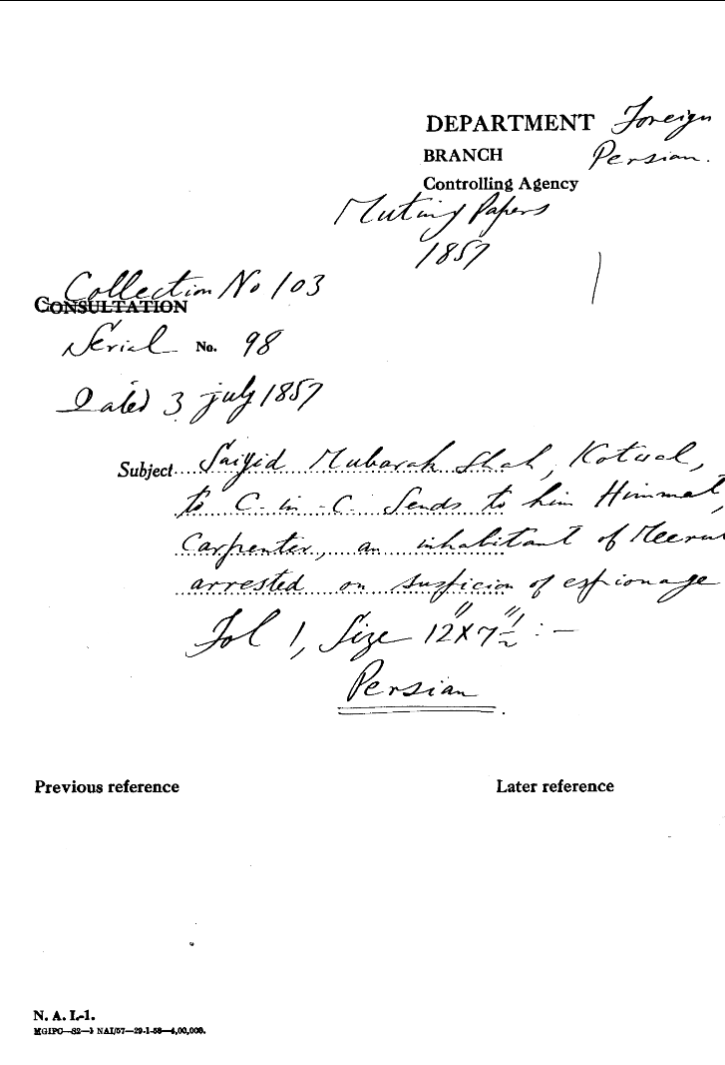 DEPARTMENT Foreign
BRANCH Persian.
Controlling Agency
Mutiny Papers
1857
Collection No 103
CONSULTATION
Serial No. 98
Dated 3 july 1857
Subject Saiyid Mubarak Shah, Kotwal,
to C-in-C. Sends to him Himmat,
Carpenter, an inhabitant of Meerut
arrested on suspicion of espionage
Fol 1, Size 12"X7"½ :-
Persian
Previous reference Later reference
N. A. I.-1.